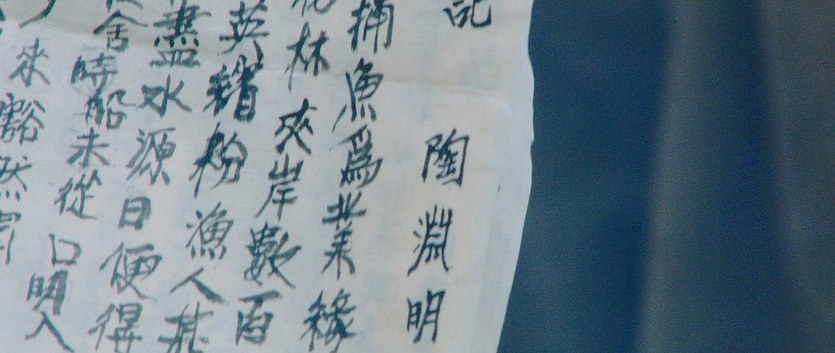 記 陶淵明
捕魚爲業緣
花林夾岸數百
英繽粉漁人甚
盡水源日便得
舍時船未從口明入
來豁然